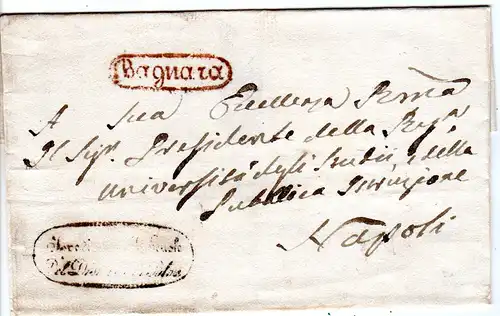 Bagnara
A Sua Eccellenza Rma
Il Sigr. Presidente della Regª
Università degli Studii, e della
Pubblica Istruzione
Napoli
Del